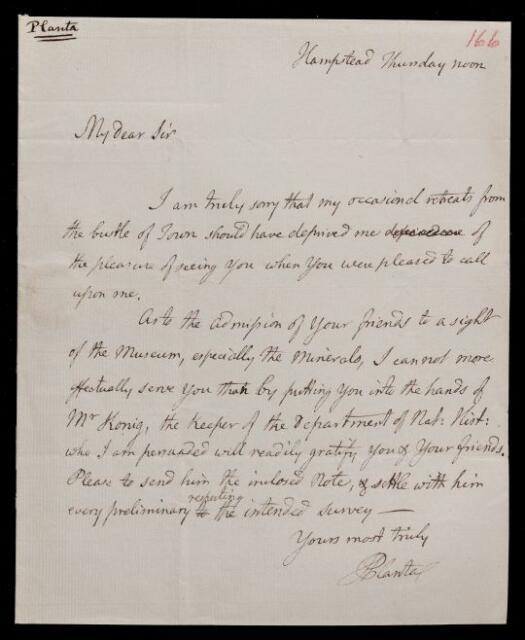 Planta
166
Hampstead Thursday noon
My dear Sir
I am truly sorry that my occasional retreats from
the bustle of Town should have deprived me of
the pleasure of seeing You when You were pleased to call
upon me.
As to the admission of Your friends to a sight
of the Museum, especially the Minerals, I cannot more
effectually serve You than by putting You into the hands of
Mr Konig, the Keeper of the Department of Nat: Hist:
who I am persuaded will readily gratify you & Your friends.
Please to send him the inclosed Note, & settle with him
respecting
every preliminary to the intended survey —
Yours most truly
JPlanta